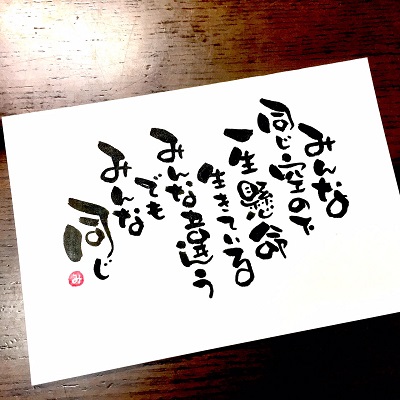 みんな
同じ空の下
一生懸命
生きている
みんな違う
でも
みんな
同じ
み